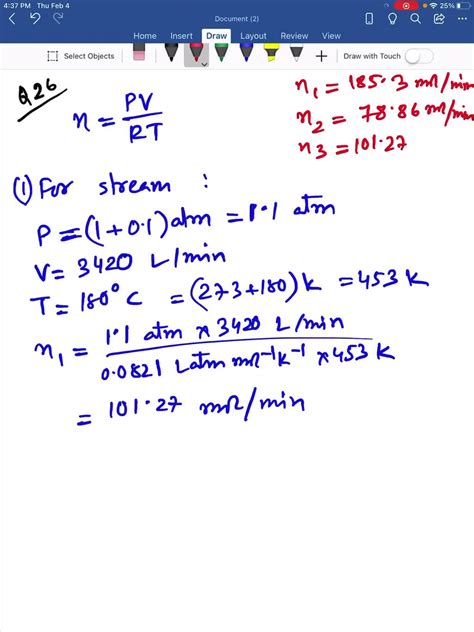 4:37 PM Thu Feb 4
25%
Document (2)
Home Insert Draw Layout Review View
Select Objects
Draw with Touch
Q26
n = PV/RT
n₁ = 185.3 mol/min
n₂ = 78.86 mol/min
n₃ = 101.27
(1) For stream :
P = (1+0.1) atm = 1.1 atm
V = 3420 L/min
T = 180°C = (273+180) k = 453 K
n₁ = 1.1 atm × 3420 L/min
0.0821 L atm mol⁻¹ k⁻¹ × 453 K
= 101.27 mol/min